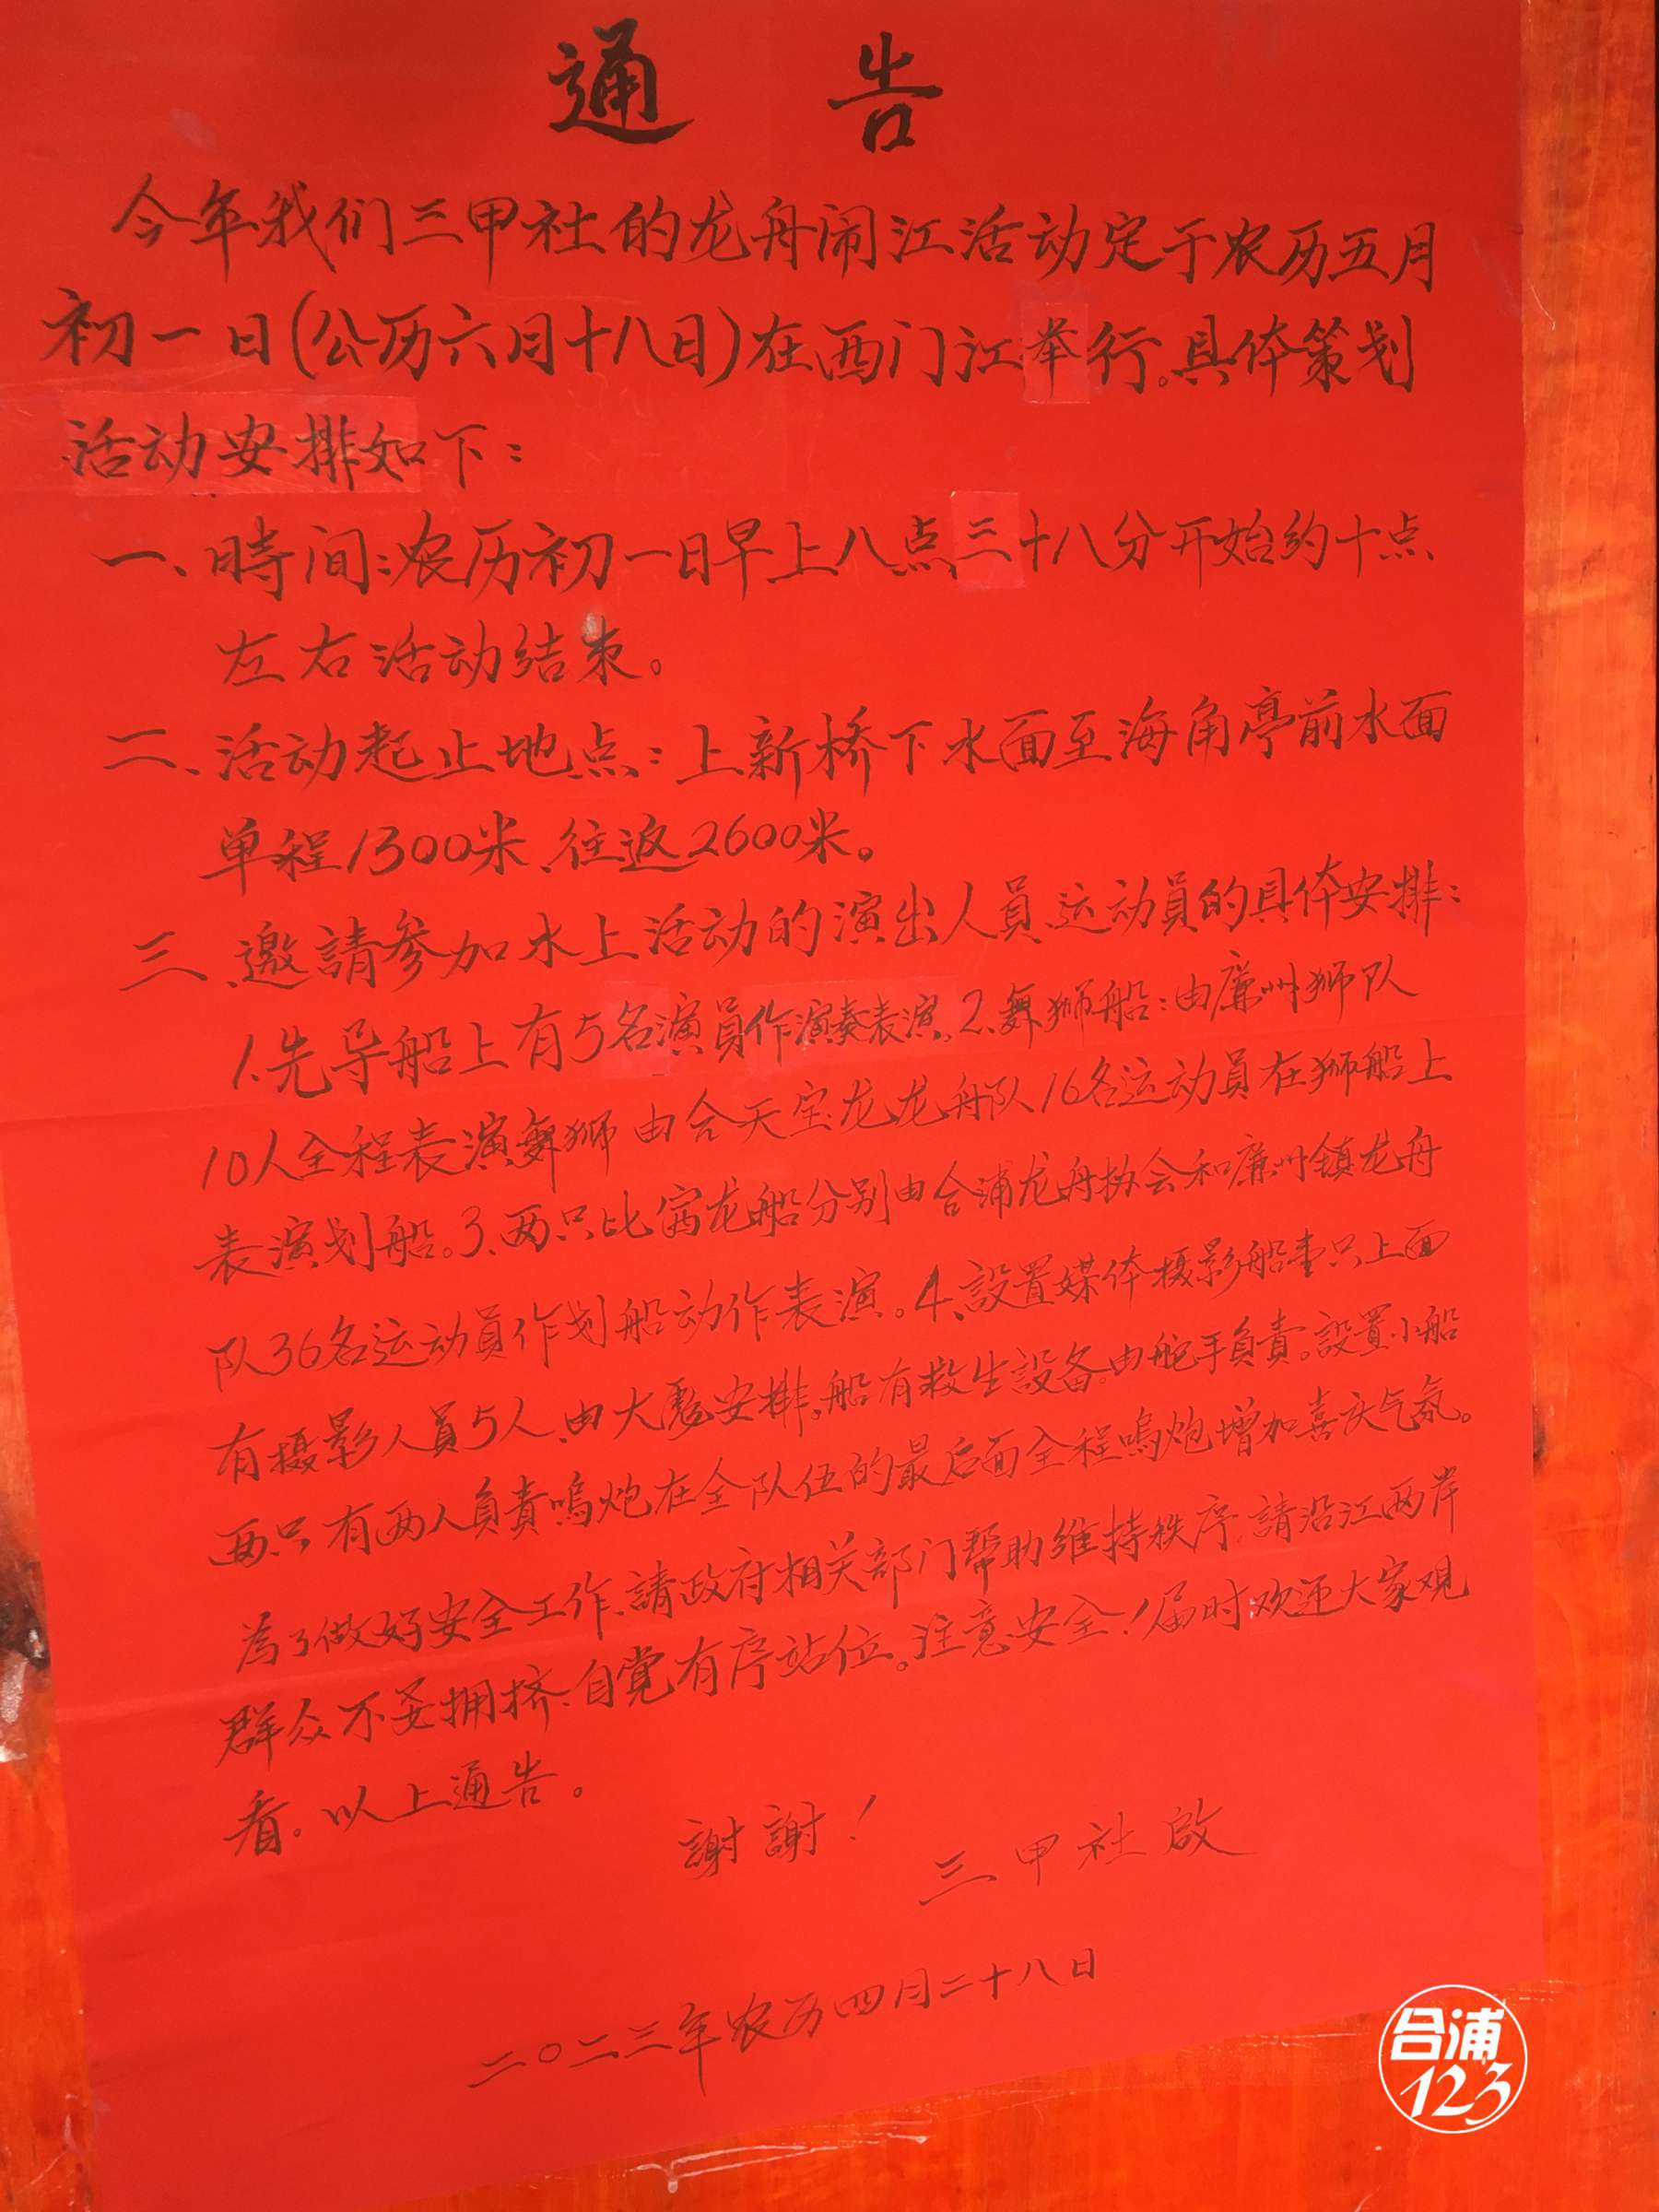 通告
今年我们三甲社的龙舟闹江活动定于农历五月
初一日(公历六月十八日)在西门江举行。具体策划
活动安排如下:
一、時间:农历初一日早上八点三十八分开始约十点
左右活动结束。
二、活动起止地点:上新桥下水面至海角亭前水面
单程1300米、往返2600米。
三、邀請参加水上活动的演出人員、运动員的具体安排:
1、先导船上有5名演員作演奏表演。2、舞狮船:由廉州狮队
10人全程表演舞狮由合天宝龙龙舟队16名运动員在狮船上
表演划船。3、两只比赛龙船分别由合浦龙舟协会和廉州镇龙舟
队36名运动員作划船动作表演。4、設置媒体摄影船壹只上面
有摄影人員5人、由大彪安排。船有救生設备。由舵手負責。設置小船
两只有两人負責鳴炮在全队伍的最后面全程鳴炮增加喜庆气氛。
為了做好安全工作、請政府相关部门帮助维持秩序、請沿江两岸
群众不要拥挤、自覚有序站位。注意安全!届时欢迎大家观
看。以上通告。
謝謝!
三甲社啟
二〇二三年农历四月二十八日
合浦
123